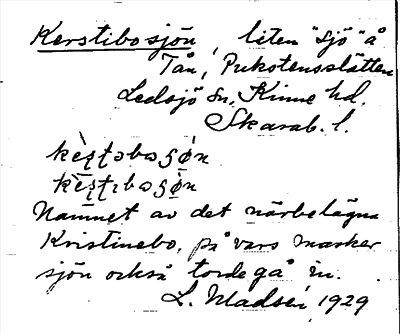 Kerstibosjön, liten "sjö" å
Tån, Pukotensslätten
Ledsjö sn, Kinne hd.
Skarab. l.
kèʂʈəbəʂø̀n
kèʂʈɪbəʂø̀n
Namnet av det närbelägna
Kristinebo, på vars marker
sjön också torde gå in.
L. Madsén 1929